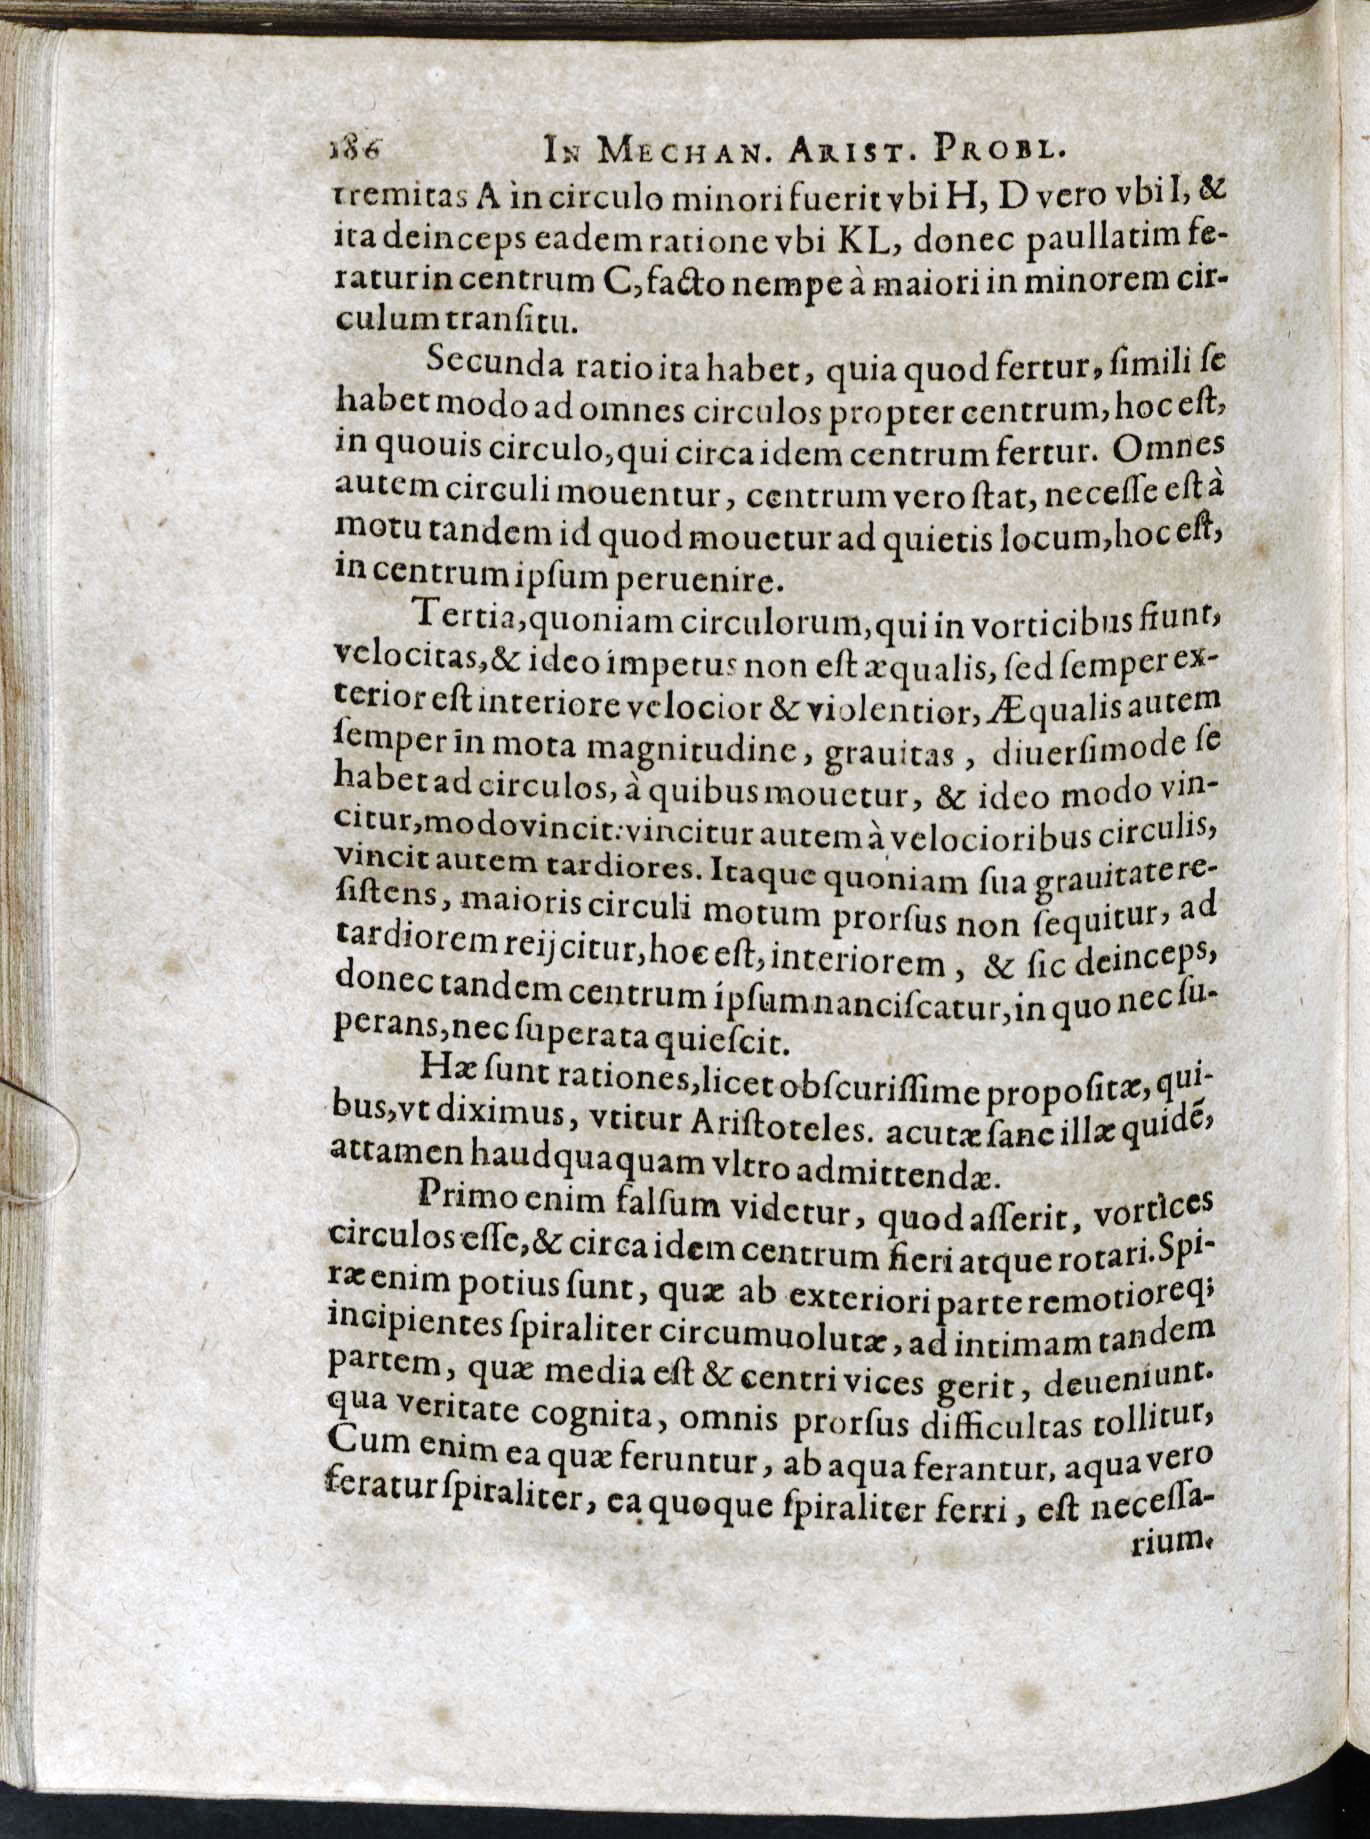 186 IN MECHAN. ARIST. PROBL.
tremitas A in circulo minori fuerit vbi H, D vero vbi I, &
ita deinceps eadem ratione vbi KL, donec paullatim fe-
ratur in centrum C, facto nempe à maiori in minorem cir-
culum tranſitu.
Secunda ratio ita habet, quia quod fertur, ſimili ſe
habet modo ad omnes circulos propter centrum, hoc eſt,
in quouis circulo, qui circa idem centrum fertur. Omnes
autem circuli mouentur, centrum vero ſtat, neceſſe eſt à
motu tandem id quod mouetur ad quietis locum, hoc eſt,
in centrum ipſum peruenire.
Tertia, quoniam circulorum, qui in vorticibus fiunt,
velocitas, & ideo impetus non eſt æqualis, ſed ſemper ex-
terior eſt interiore velocior & violentior, Æqualis autem
ſemper in mota magnitudine, grauitas, diuerſimode ſe
habet ad circulos, à quibus mouetur, & ideo modo vin-
citur, modo vincit: vincitur autem à velocioribus circulis,
vincit autem tardiores. Itaque quoniam ſua grauitate re-
ſiſtens, maioris circuli motum prorſus non ſequitur, ad
tardiorem reijcitur, hoc eſt, interiorem, & ſic deinceps,
donec tandem centrum ipſum nanciſcatur, in quo nec ſu-
perans, nec ſuperata quieſcit.
Hæ ſunt rationes, licet obſcuriſſime propoſitæ, qui-
bus, vt diximus, vtitur Ariſtoteles. acutæ ſane illæ quidẽ,
attamen haudquaquam vltro admittendæ.
Primo enim falſum videtur, quod aſſerit, vortices
circulos eſſe, & circa idem centrum fieri atque rotari. Spi-
ræ enim potius ſunt, quæ ab exteriori parte remotioreq;
incipientes ſpiraliter circumuolutæ, ad intimam tandem
partem, quæ media eſt & centri vices gerit, deueniunt.
qua veritate cognita, omnis prorſus difficultas tollitur,
Cum enim ea quæ feruntur, ab aqua ferantur, aqua vero
feratur ſpiraliter, ea quoque ſpiraliter ferri, eſt neceſſa-
rium.